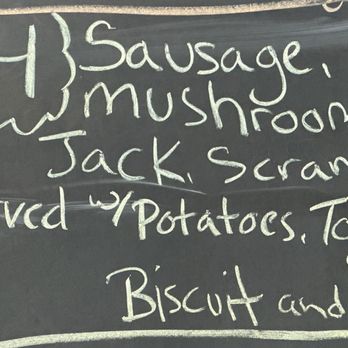 4} Sausage,
mushroom
Jack. Scram
ved w/ Potatoes. To
Biscuit and